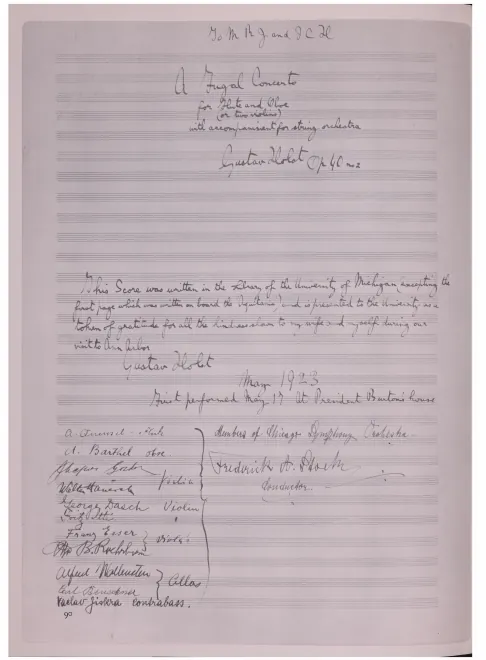 To M B J and J C H
A Fugal Concerto
for Flute and Oboe
(or two violins)
with accompaniment for string orchestra
Gustav Holst Op 40 no 2
This Score was written in the Library of the University of Michigan, excepting the
first page which was written on board the Aquitania, and is presented to the University as a
token of gratitude for all the kindness shown to my wife and myself during our
visit to Ann Arbor
Gustav Holst
May 1923
First performed May 17 at President Burton's house
A. flute
A. Barthel oboe.
Members of Chicago Symphony Orchestra.
Violin
Frederick A. Stock
Conductor
George Dasch Violin
Franz Esser
Viola
Otto B. Roehrborn
Alfred Wallenstein
Cellos
Carl
Vaclav Jiskra contrabass.
90